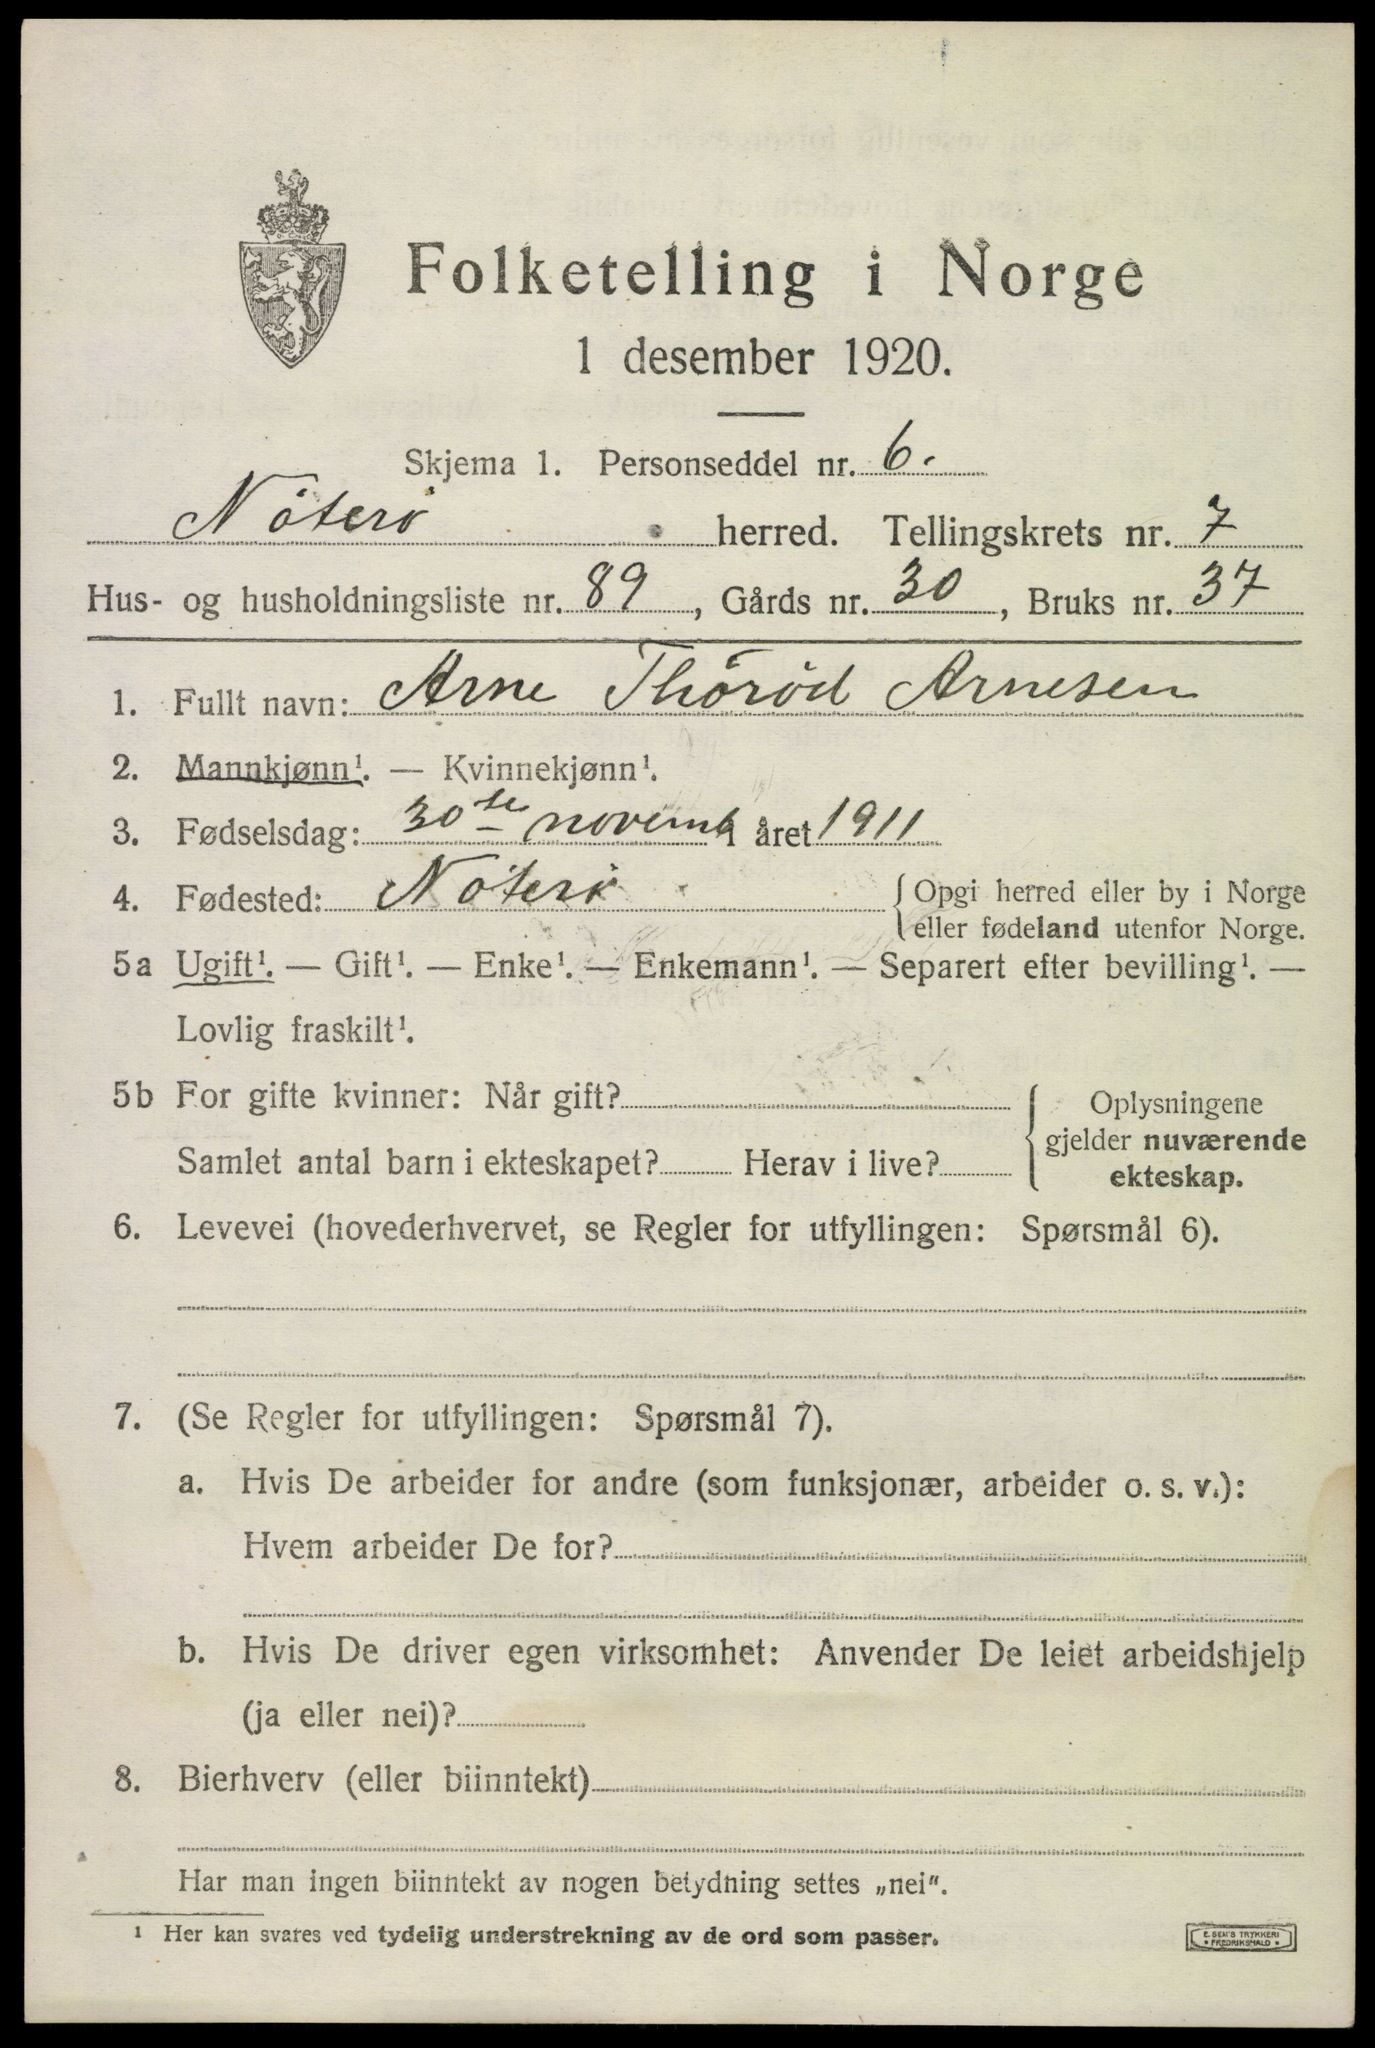 Folketelling i Norge
1 desember 1920.
Skjema 1. Personseddel nr. 6.
Nöterö herred. Tellingskrets nr. 7
Hus- og husholdningsliste nr. 89, Gårds nr. 30, Bruks nr. 37
1. Fullt navn: Arne Thöröd Arnesen
2. Mannkjønn¹. — Kvinnekjønn¹.
3. Fødselsdag: 30te novemb i året 1911
4. Fødested: Nöterö { Opgi herred eller by i Norge
eller fødeland utenfor Norge.
5a Ugift¹. — Gift¹. — Enke¹. — Enkemann¹. — Separert efter bevilling¹. —
Lovlig fraskilt¹.
5b For gifte kvinner: Når gift?
Samlet antal barn i ekteskapet? Herav i live?
{ Oplysningene
gjelder nuværende
ekteskap.
6. Levevei (hovederhvervet, se Regler for utfyllingen: Spørsmål 6).
7. (Se Regler for utfyllingen: Spørsmål 7).
a. Hvis De arbeider for andre (som funksjonær, arbeider o. s. v.):
Hvem arbeider De for?
b. Hvis De driver egen virksomhet: Anvender De leiet arbeidshjelp
(ja eller nei)?
8. Bierhverv (eller biinntekt)
Har man ingen biinntekt av nogen betydning settes „nei".
¹ Her kan svares ved tydelig understrekning av de ord som passer.
E. SEM'S TRYKKERI
• FREDRIKSHALD •